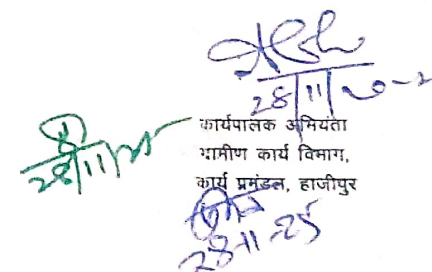 28/11/20-2
28/11/25
कार्यपालक अभियंता
ग्रामीण कार्य विभाग,
कार्य प्रमंडल, हाजीपुर
28-11-25